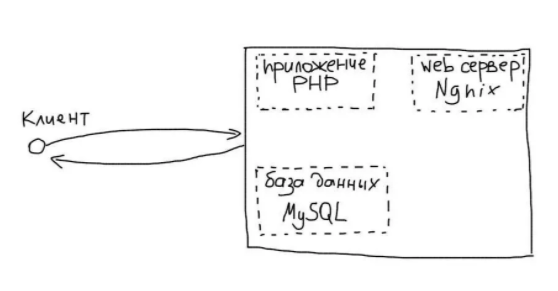 Клиент
приложение
PHP
web сервер
Nghix
база данных
MySQL